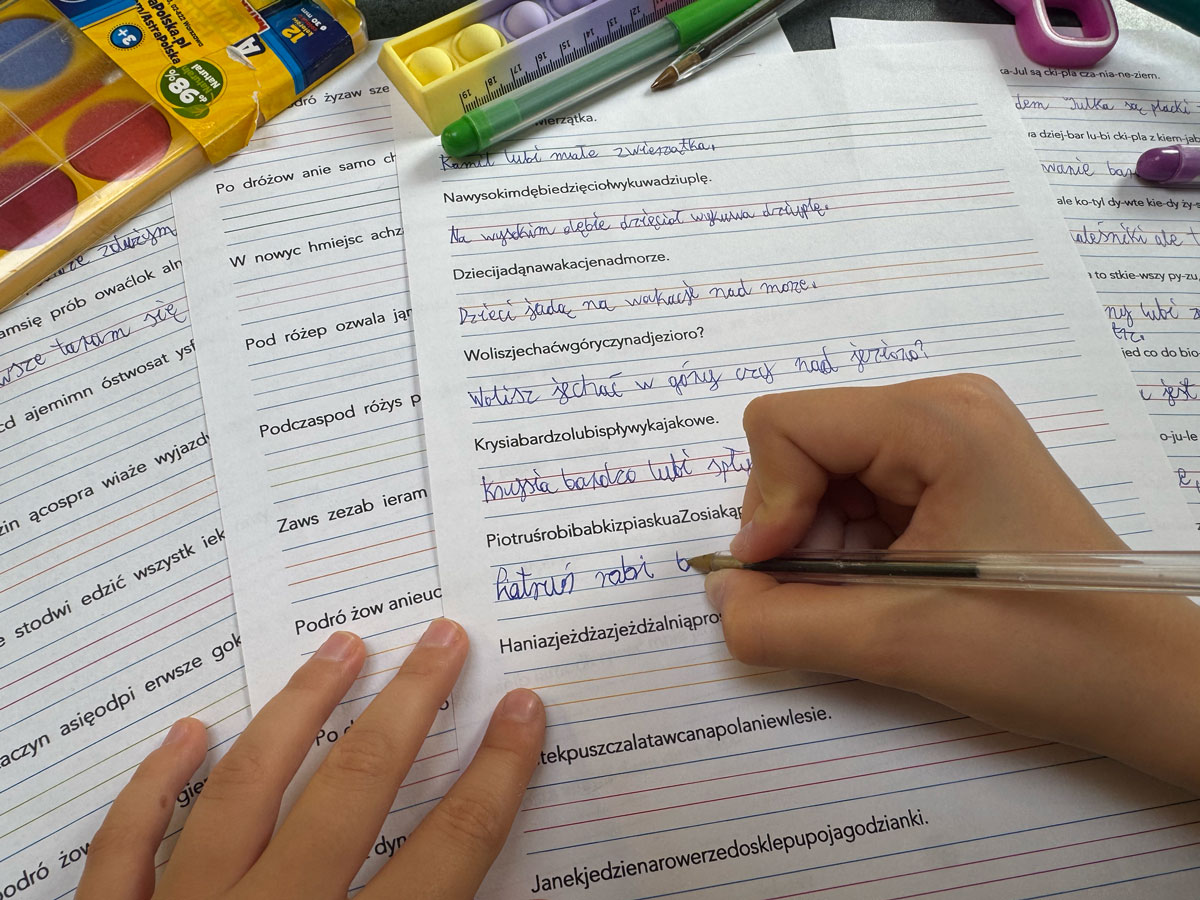 AstraPolska.pl
m/AstraPolska
3+
98%
Natural
do
12
19 18 17 16 15 14 13 12 11
dró żyzaw sze
Po dróżow anie samo ch
W nowyc hmiejsc achz
Pod różep ozwala jąn
Podczaspod różys p
Zaws zezab ieram
Podró żow anieuc
Po d
dyn
zdużym
amsię prób owaćlok aln
wsze taram się
cd ajemimn óstwosat ysf
zin ącospra wiaże wyjazdy
e stodwi edzić wszystk iek
aczyn asięodpi erwsze gok
podró żow
gier
wierzątka.
Kamil lubi małe zwierzątka.
Nawysokimdębiedzięciołwykuwadziuplę.
Na wysokim dębie dzięcioł wykuwa dziuplę.
Dziecijadąnawakacjenadmorze.
Dzieci jadą na wakacje nad morze.
Woliszjechaćwgóryczynadjezioro?
Wolisz jechać w góry czy nad jezioro?
Krysiabardzolubispływykajakowe.
Krysia bardzo lubi spły
PiotruśrobibabkizpiaskuaZosiakąp
robi b
Haniazjeżdżazjeżdżalniąpros
tekpuszczalatawcanapolaniewlesie.
Janekjedzienarowerzedosklepupojagodzianki.
ka-Jul są cki-pla cza-nia-ne-ziem.
dem Julka są placki
wa dziej-bar lu-bi cki-pla z kiem-jab
wanie bar
ale ko-tyl dy-wte kie-dy ży-s
aleśniki ale t
to stkie-wszy py-zu,
ny lubi z
jed co do bio-
jest
o-ju-le
ę,